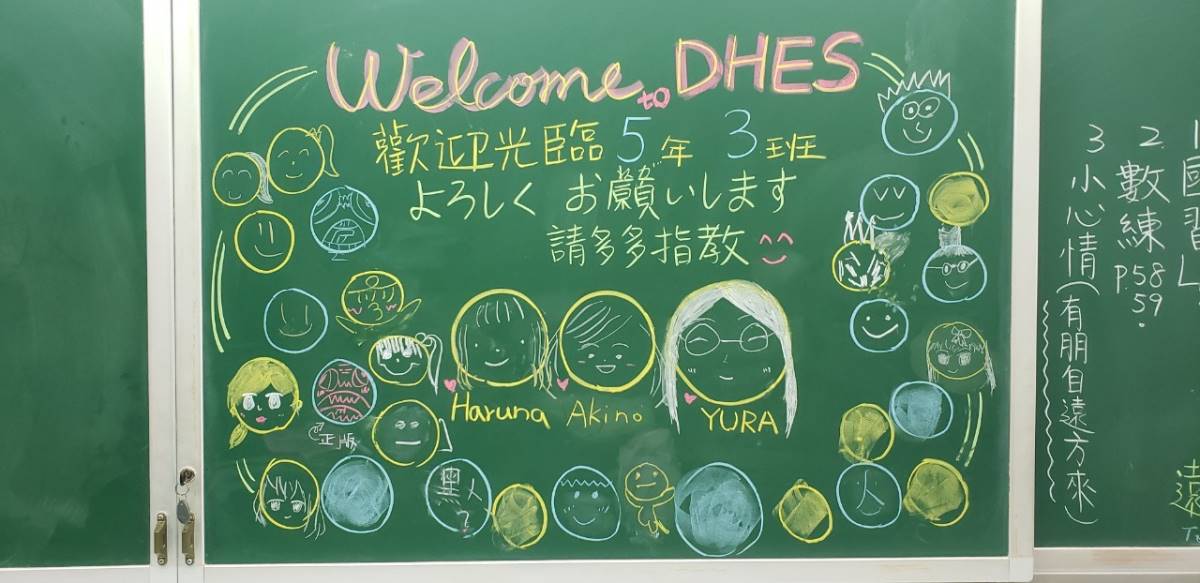 Welcome to DHES
歡迎光臨 5年 3班
よろしく お願いします
請多多指教
Haruna Akino YURA
正版
黑人?
2. 數練 P.58 59.
3 小心情(有朋自遠方來)
遠